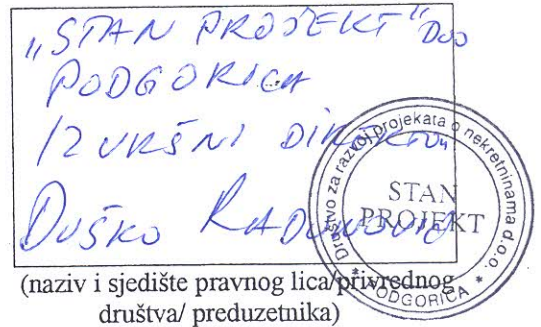 „STAN PROJEKT“ DOO
PODGORICA
IZVRŠNI DIREKTOR
DUŠKO RADUNOVIĆ
Društvo za razvoj projekata o nekretninama d.o.o.
STAN
PROJEKT
* PODGORICA *
(naziv i sjedište pravnog lica/privrednog
društva/ preduzetnika)